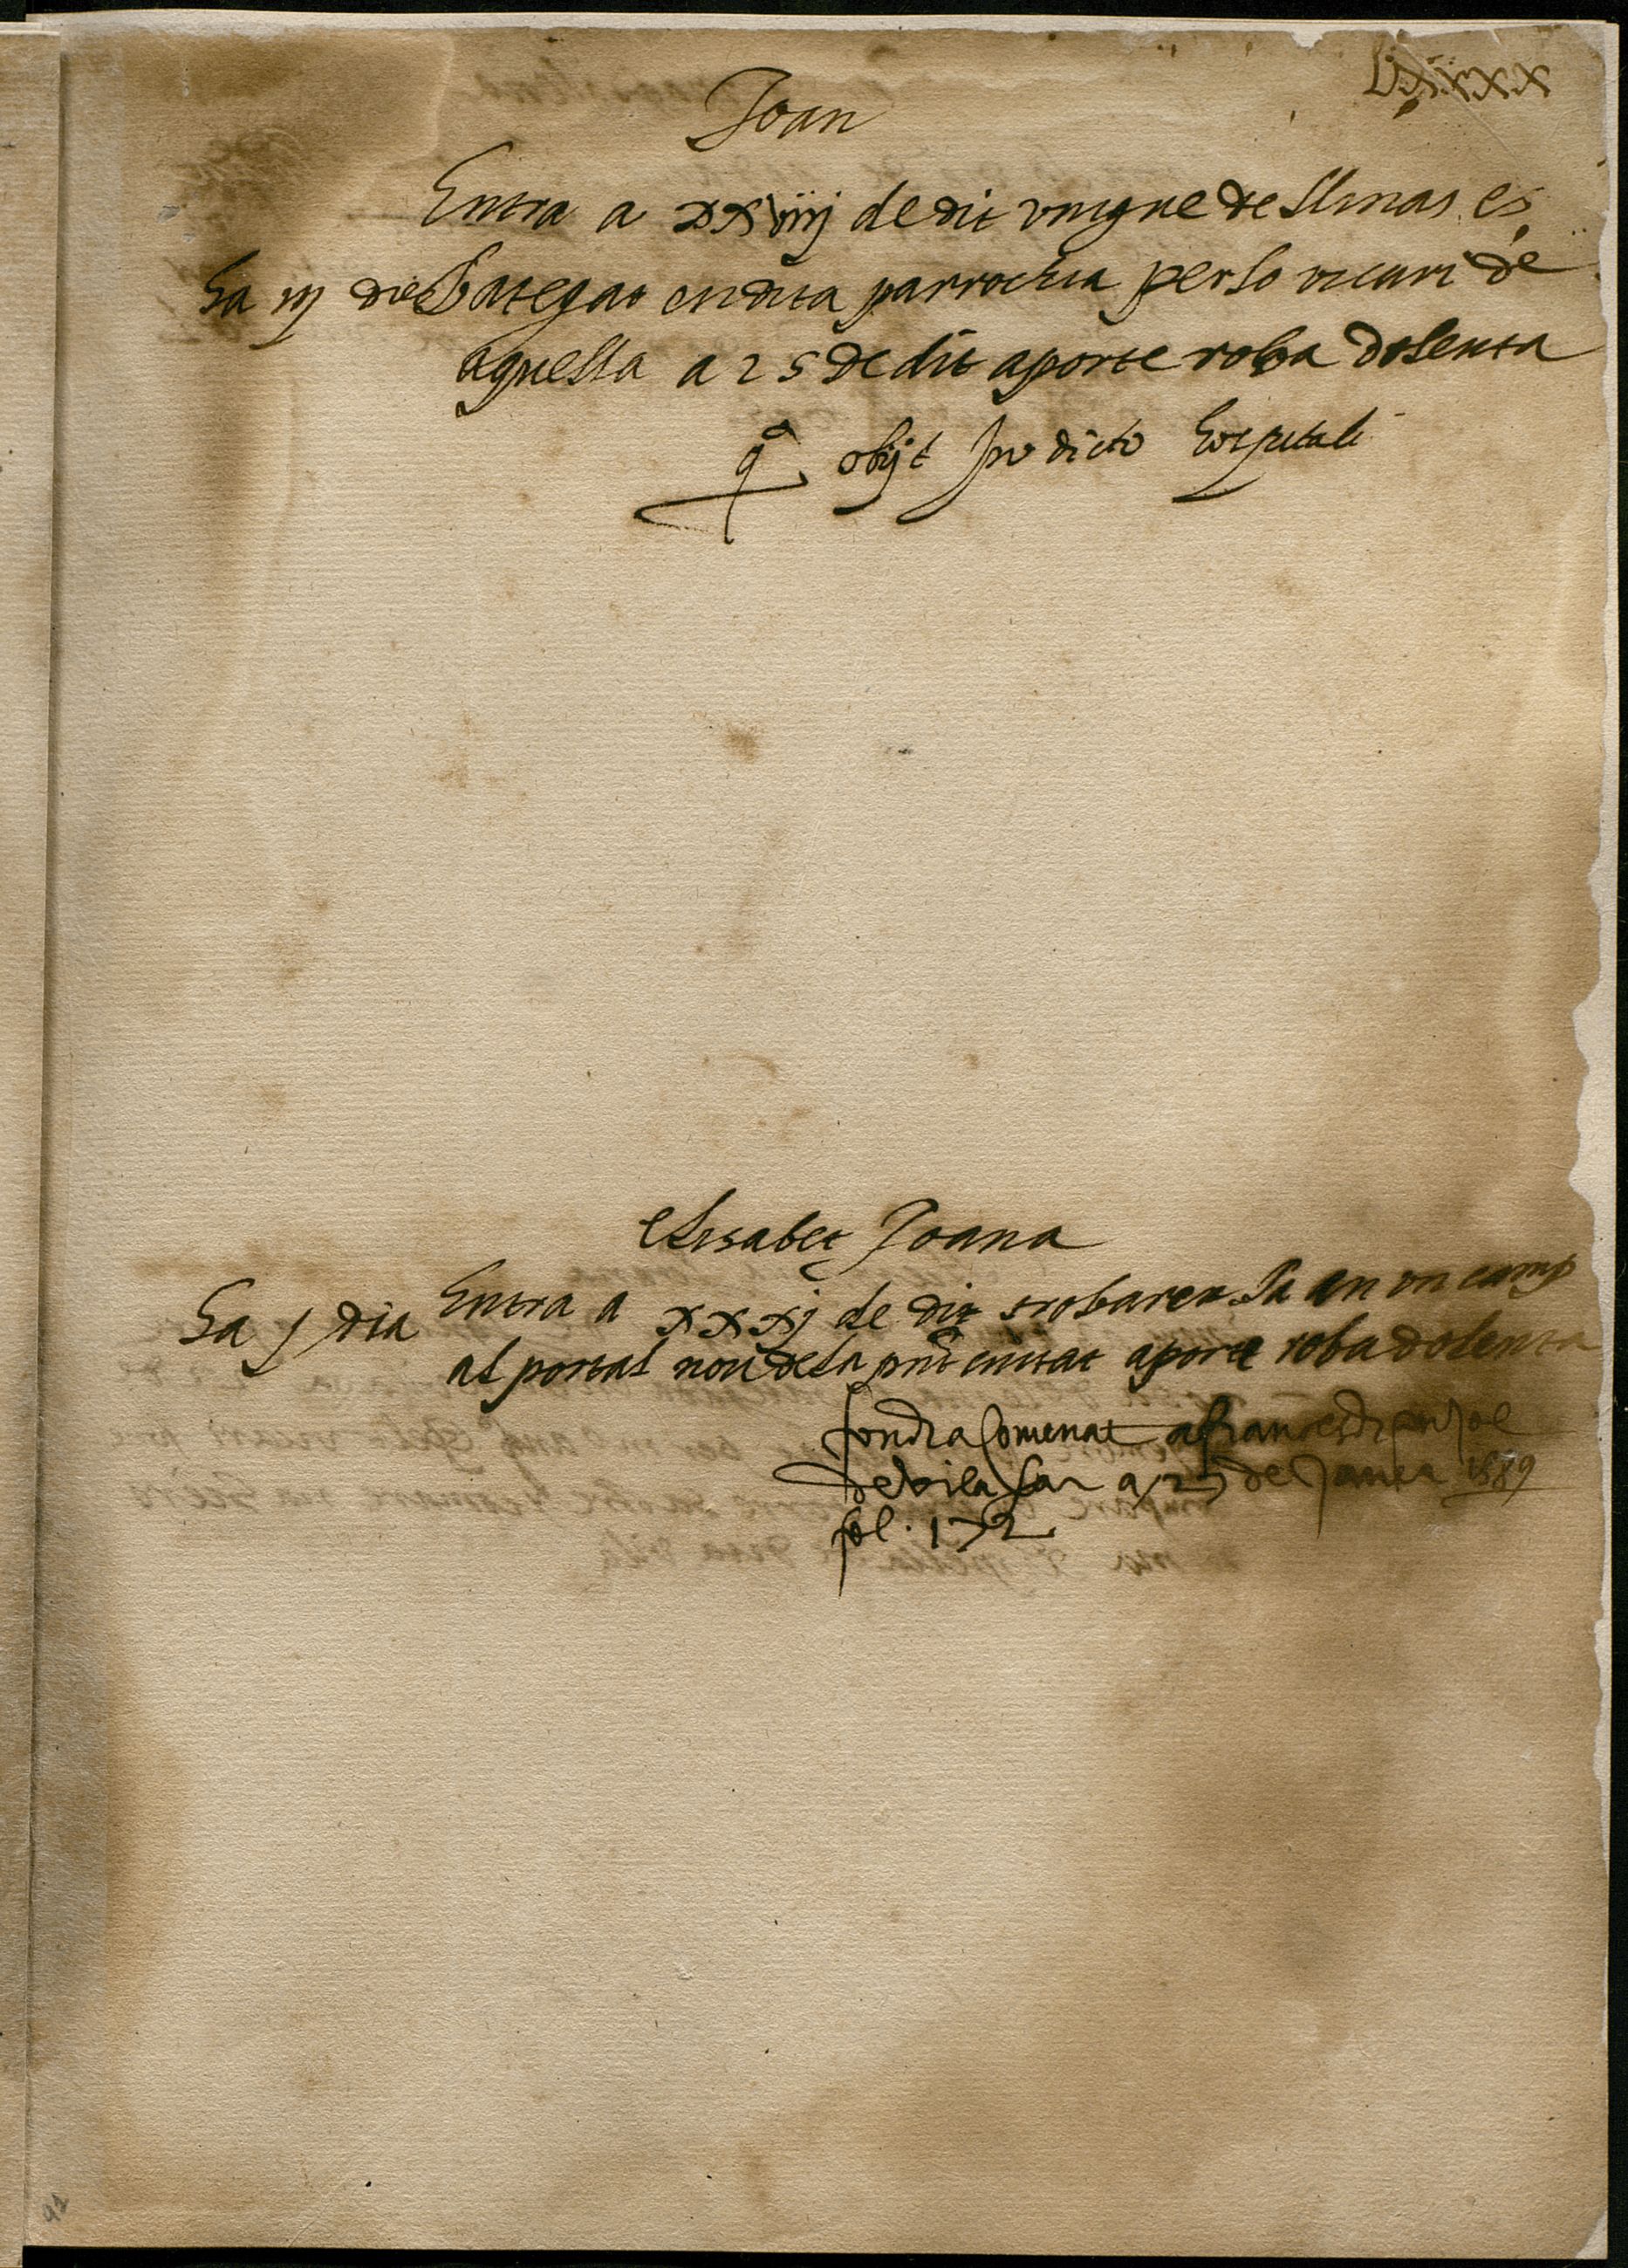 Lxxxx
Joan
Entra a xxviiij de dit vingue de llinas es
ha iij dies bategat en dita parrochia per lo vicari de
aquella a 25 de dit aporte roba dolenta
obijt in dicto hospitali
elisabet Joana
ha j dia Entra a xxxj de dit trobaren la en un camp
al portal nou de la pnt ciutat aporta roba dolenta
fon dia comenat a frances
de vilasar a 25 de Janer 1589
fol. 172
92